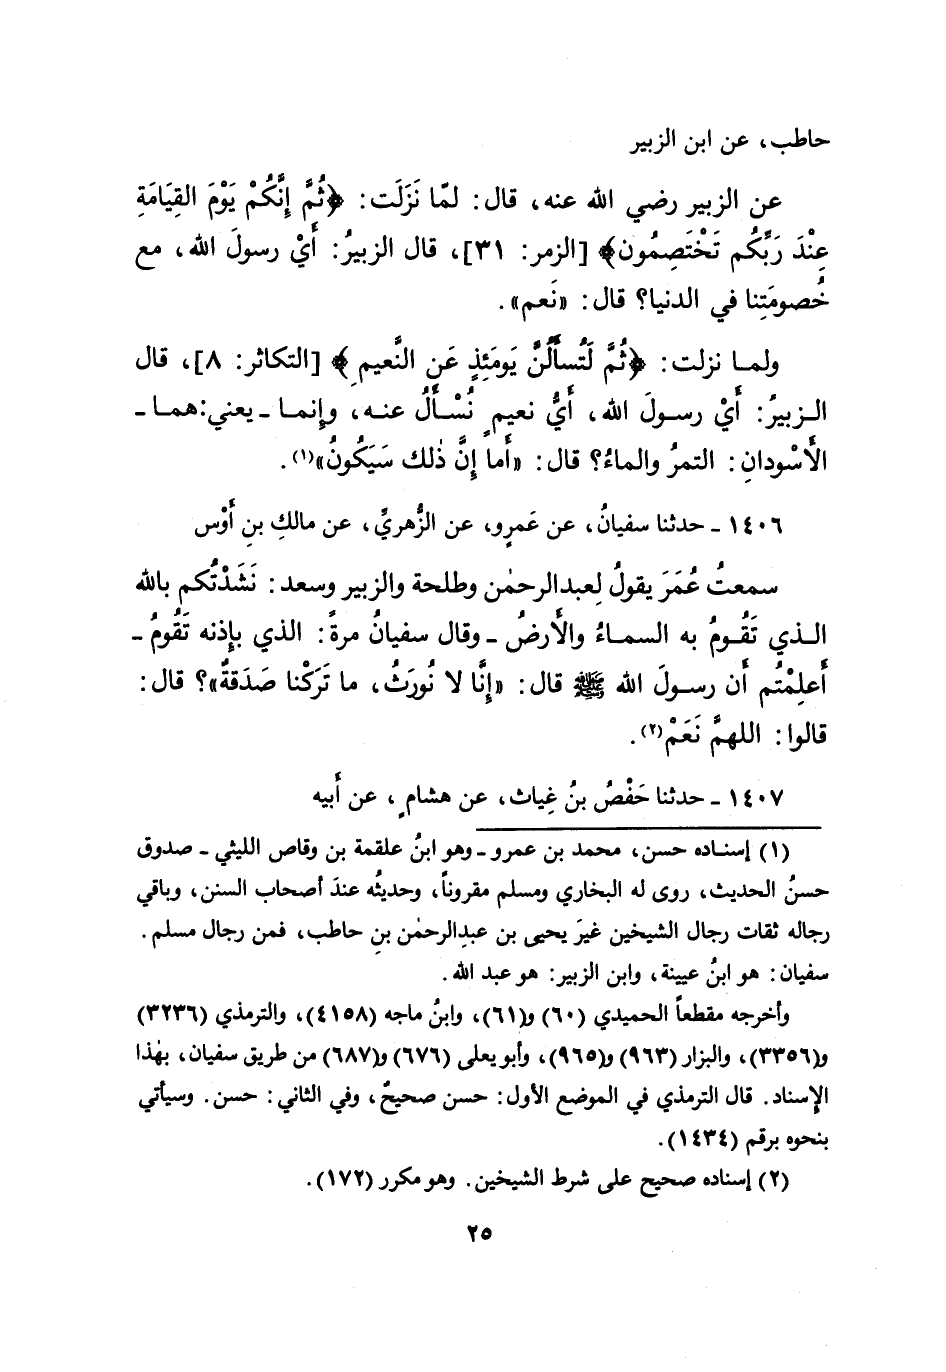 حاطب، عن ابن الزبير
عن الزبير رضي الله عنه، قال: لمّا نَزَلَت: ﴿ثُمَّ إِنَّكُمْ يَوْمَ القِيَامَةِ
عِنْدَ رَبِّكُم تَخْتَصِمُون﴾ [الزمر: ٣١]، قال الزبيرُ: أَيْ رسولَ الله، مع
خُصومَتِنا في الدنيا؟ قال: «نَعم».
ولمـا نزلت: ﴿ثُمَّ لَتُسأَلُنَّ يَومَئِذٍ عَنِ النَّعيمِ﴾ [التكاثر: ٨]، قال
الـزبيرُ: أَيْ رسـولَ الله، أَيُّ نعيمٍ نُسْـأَلُ عنـه، وإنمـا ـ يعني: همـا ـ
الأَسْودانِ: التمرُ والماءُ؟ قال: «أَما إِنَّ ذٰلك سَيَكُونُ»(١).
١٤٠٦ ـ حدثنا سفيانُ، عن عَمرٍو، عن الزُّهريِّ، عن مالكِ بنِ أَوْس
سمعتُ عُمَرَ يقولُ لِعبدالرحمٰن وطلحة والزبير وسعد: نَشَدْتُكم بالله
الـذي تَقُـومُ به السمـاءُ والأَرضُ ـ وقال سفيانُ مرةً: الذي بإذنه تَقُومُ ـ
أَعلِمْتُم أَن رسـولَ الله ﷺ قال: «إِنَّا لا نُورَثُ، ما تَرَكْنا صَدَقةٌ»؟ قال:
قالوا: اللهمَّ نَعَمْ(٢).
١٤٠٧ ـ حدثنا حَفْصُ بنُ غِياث، عن هشامٍ، عن أَبيه
(١) إسنـاده حسن، محمد بن عمرو ـ وهو ابنُ علقمة بن وقاص الليثي ـ صدوق
حسنُ الحديث، روى له البخاري ومسلم مقروناً، وحديثُه عندَ أصحاب السنن، وباقي
رجاله ثقات رجال الشيخين غيرَ يحيى بن عبدِالرحمٰن بنِ حاطب، فمن رجال مسلم.
سفيان: هو ابنُ عيينة، وابن الزبير: هو عبد الله.
وأخرجه مقطعاً الحميدي (٦٠) و(٦١)، وابنُ ماجه (٤١٥٨)، والترمذي (٣٢٣٦)
و(٣٣٥٦)، والبزار (٩٦٣) و(٩٦٥)، وأبو يعلى (٦٧٦) و(٦٨٧) من طريق سفيان، بهٰذا
الإسناد. قال الترمذي في الموضع الأول: حسن صحيحٌ، وفي الثاني: حسن. وسيأتي
بنحوه برقم (١٤٣٤).
(٢) إسناده صحيح على شرط الشيخين. وهو مكرر (١٧٢).
٢٥